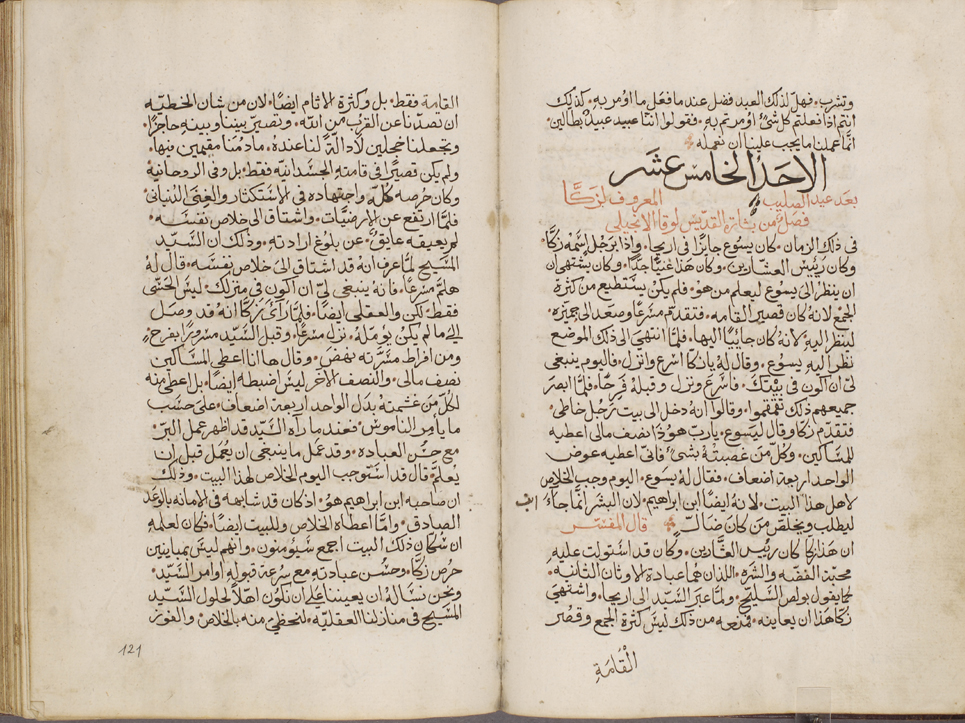 وتشرب. فهل لذلك العبد فضل عند ما فعل ما اؤمر به. كذلك
انتم اذا فعلتم كل شيء اؤمرتم به. فقولوا اننا عبيد عبيد بطالين.
انما عملنا ما يجب علينا ان نعمله
الاحد الخامس عشر
بعد عيد الصليب المعروف لزكا
فصل من بشارة القديس لوقا الانجيلي
في ذلك الزمان. كان يسوع جايزا في اريحا. واذا برجل اسمه زكا.
وكان رييس العشارين. وكان هذا غنيا جدا. وكان يشتهي ان
ان ينظر الى يسوع ليعلم من هو. فلم يكن يستطيع من كثرة
الجمع لانه كان قصير القامه. فتقدم مسرعا وصعد الى جميزه.
لينظر اليه لانه كان جاييا اليها. فلما انتهى الى ذلك الموضع
نظر اليه يسوع. وقال له يا زكا اسرع وانزل. فاليوم ينبغي
لي ان اكون في بيتك. فاسرع ونزل وقبله فرحا. فلما ابصر
جميعهم ذلك تقمقموا. وقالوا انه دخل الى بيت رجل خاطي.
فتقدم زكا وقال ليسوع. يا رب هوذا نصف مالي اعطيه
للمساكين. وكل من غصبته بشي. فاني اعطيه عوض
الواحد اربعة اضعاف. فقال له يسوع. اليوم وجب الخلاص
لاهل هذا البيت. لانه ايضا ابن ابراهيم. لان البشر انما جاء
ابن
ليطلب ويخلص من كان ضالا قال المفسر
ان هذا زكا كان رييس العشارين. وكان قد استولت عليه
محبة الفضه والشره. اللذان هما عبادة الاوثان الثانيه.
كما يقول بولص السليح. ولما عبر السيد الى اريحا. واشتهى
زكا هذا ان يعاينه. فمنعه من ذلك ليس كثرة الجمع وقصر
القامة
القامة فقط. بل وكثرة الاثام ايضا. لان من شان الخطيه
ان تصدنا عن القرب من الله. وتصير بيننا وبينه حاجزا.
وتجعلنا خجلين لا دالة لنا عنده. ما دمنا مقيمين فيها.
ولم يكن قصيرا في قامته الجسدانيه فقط. بل وفي الروحانية
وكان حرصه كله واجتهاده في الاستكثار والغنى الدنياني.
فلما ارتفع عن الارضيات. واشتاق الى خلاص نفسه.
لم يعيقه عايق عن بلوغ ارادته. وذلك ان السيد
المسيح لما عرف انه قد اشتاق الى خلاص نفسه. قال له
هلم مسرعا. فانه ينبغي لي ان اكون في منزلك. ليس الحسي
فقط. لكن والعقلي ايضا. فلما رآى زكا انه قد وصل
الى ما لم يكن يؤمله. نزل مسرعا. وقبل السيد مسرورا بفرح.
ومن افراط مسرته نهض. وقال ها انا اعطي المساكين
نصف مالي. والنصف الاخر ليس اضبطه ايضا. بل اعطي منه
لكل من غشمته بدل الواحد اربعة اضعاف. على حسب
ما يامر الناموس. فعند ما رآه السيد قد اظهر عمل البر.
مع حسن العباده. وقد عمل ما ينبغي ان يعمل قبل ان
يعلم. قال قد استوجب اليوم الخلاص لهذا البيت. وذلك
ان صاحبه ابن ابراهيم هو. اذ كان قد شابهه في الامانه بالوعد
الصادق. وانما اعطاه الخلاص وللبيت ايضا. فكان لعلمه
ان سكان ذلك البيت اجمع سيؤمنون. وانهم ليس بمباينين
حرص زكا. وحسن عبادته مع سرعة قبوله اوامر السيد.
ونحن نساله ان يعيننا على ان نكون اهلا لحلول السيد
المسيح في منازلنا العقليه. لنحظى منه بالخلاص والفوز
121